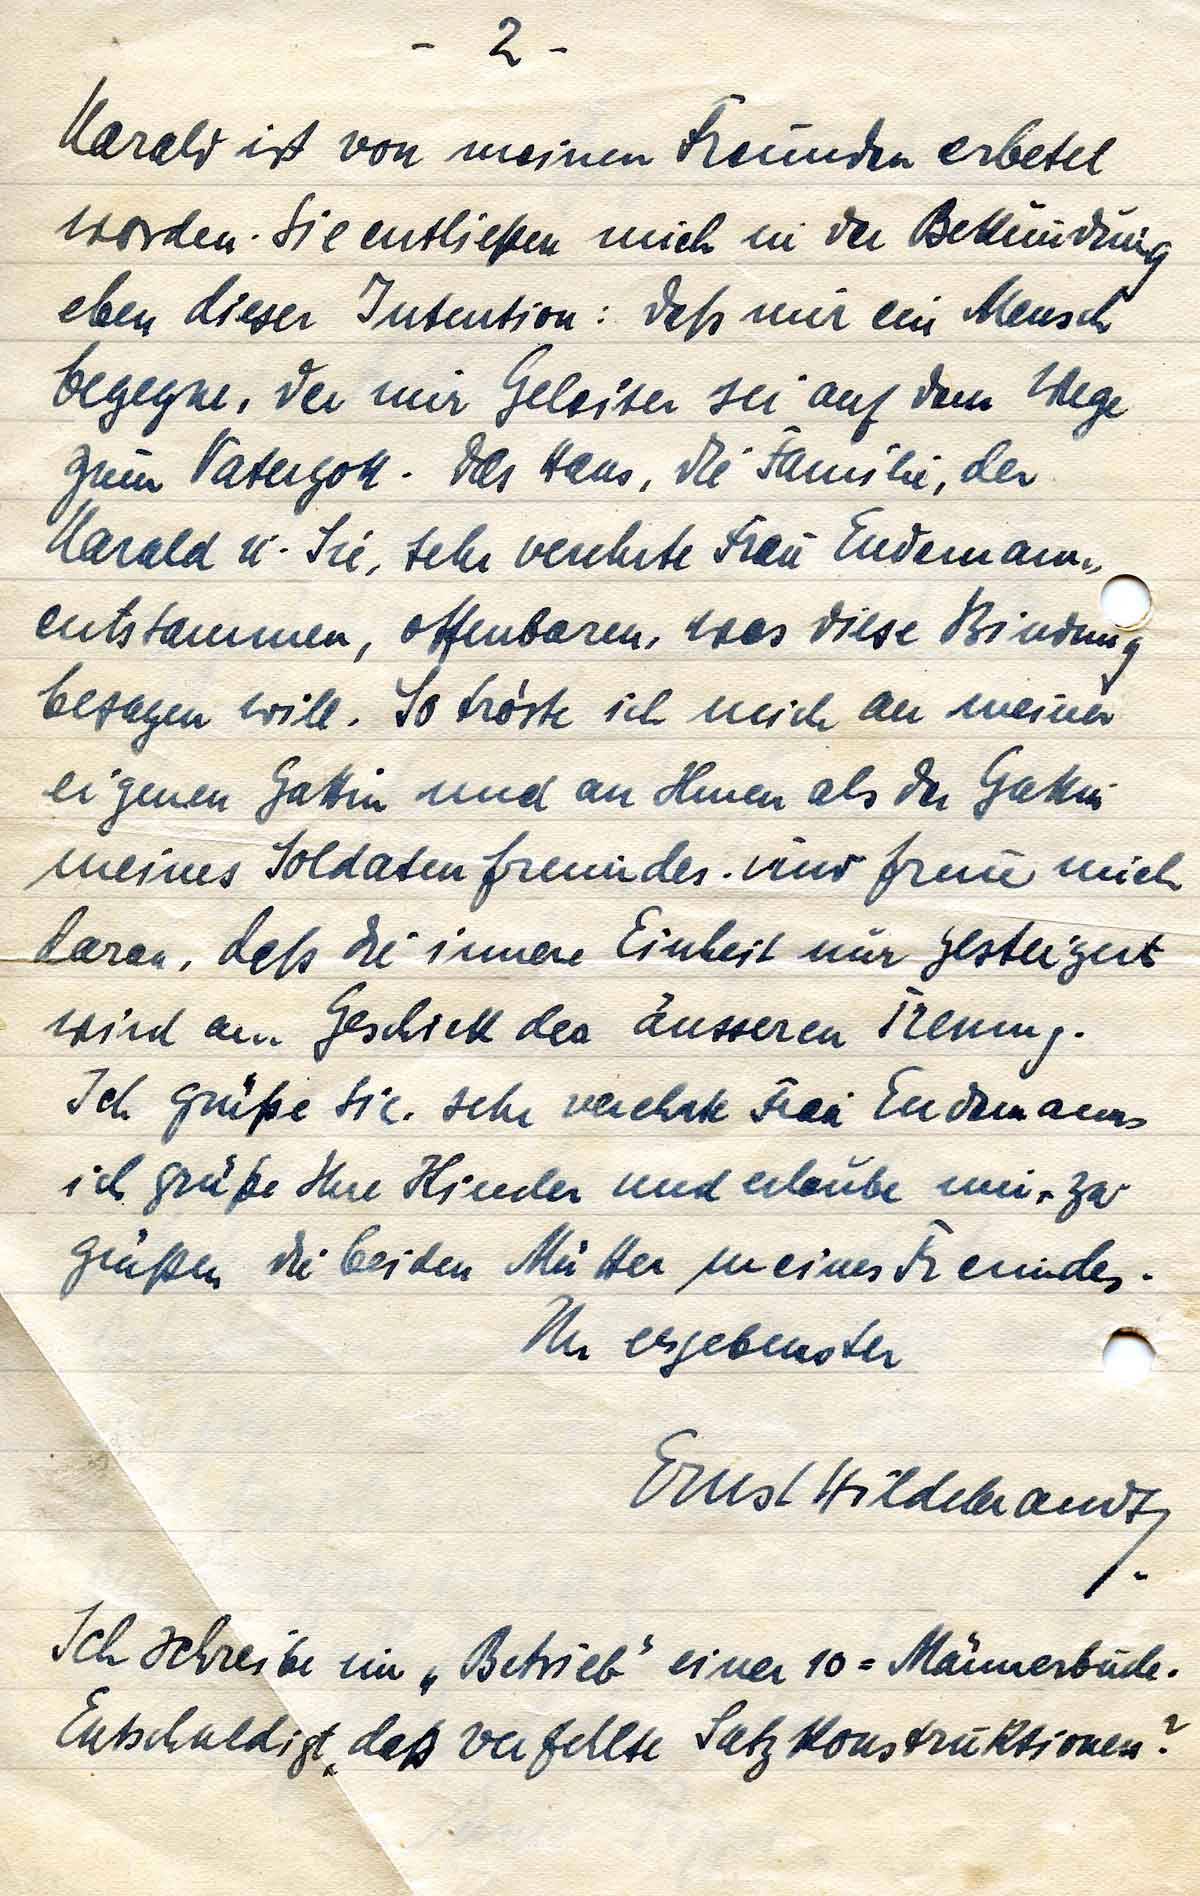 - 2 -
Harald ist von meinen Freunden erbetet
worden. Sie entließen mich in der Bekundung
eben dieser Intention: daß mir ein Mensch
begegne, der mir Geleiter sei auf dem Wege
zum Vatergott. Das Haus, die Familie, der
Harald u. Sie, sehr verehrte Frau Endemann,
entstammen, offenbaren, was diese Bindung
besagen will. So tröste ich mich an meiner
eigenen Gattin und an Ihnen als der Gattin
meines Soldatenfreundes. und freue mich
daran, daß die innere Einheit nur gesteigert
wird am Geschick der äusseren Trennung.
Ich grüße Sie, sehr verehrte Frau Endemann,
ich grüße Ihre Kinder und erlaube mir, zu
grüßen die beiden Mütter meines Freundes.
Ihr ergebenster
Ernst Hildebrandt.
Ich schreibe im „Betrieb" einer 10=Männerbude.
Entschuldigt, daß verfehlte Satzkonstruktionen?